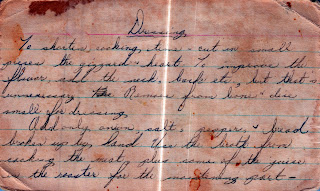 Dressing
To shorten cooking time - cut in small
pieces the gizzard & heart. To improve the
flavor, add the neck, back etc, but that's
unnecessary. Remove from bone & dice
small for dressing.
Add only onion, salt, pepper, & bread
broken up by hand. Use the broth from
cooking the meat, plus some of the juice
in the roaster for the moistening part -